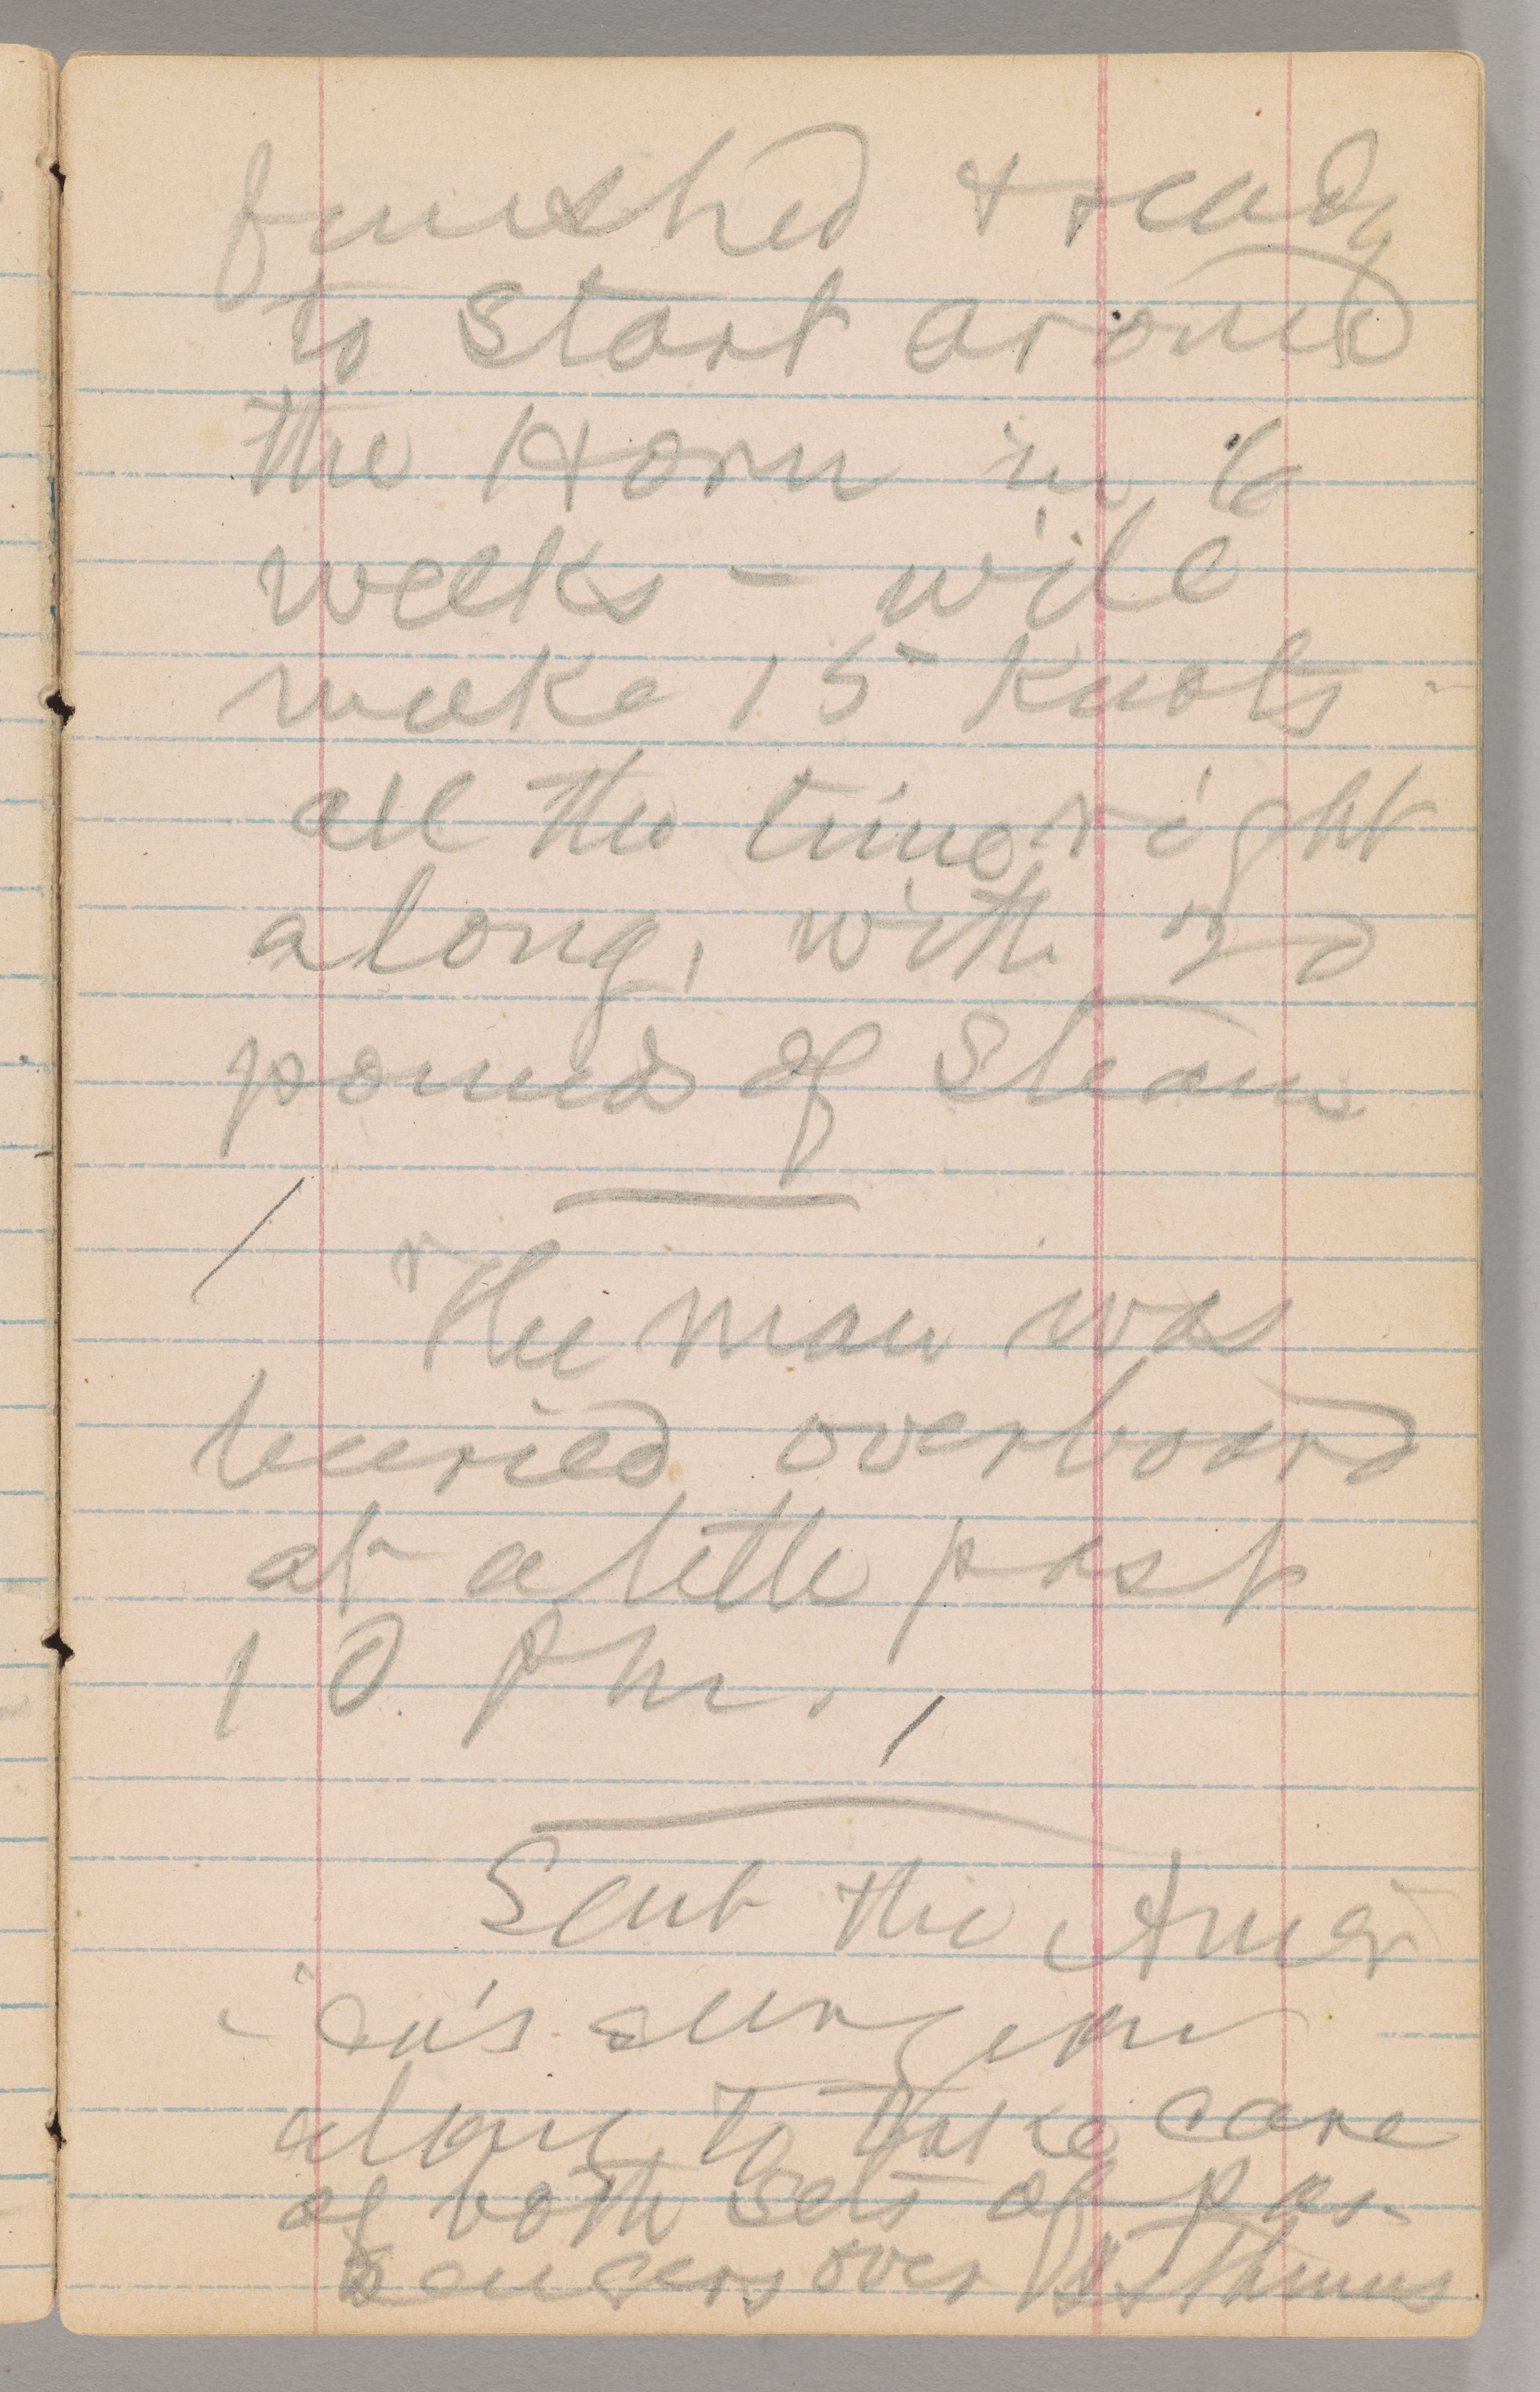 finished & ready
to start around
the Horn in 6
weeks – will
make 15 knots
all the time, right
along, with 20
pounds of steam
The man was
buried overboard
at a little past
10 PM.
Sent the Amer
ica's surgeon
along to take care
of both sets of pas-
sengers over Isthmus